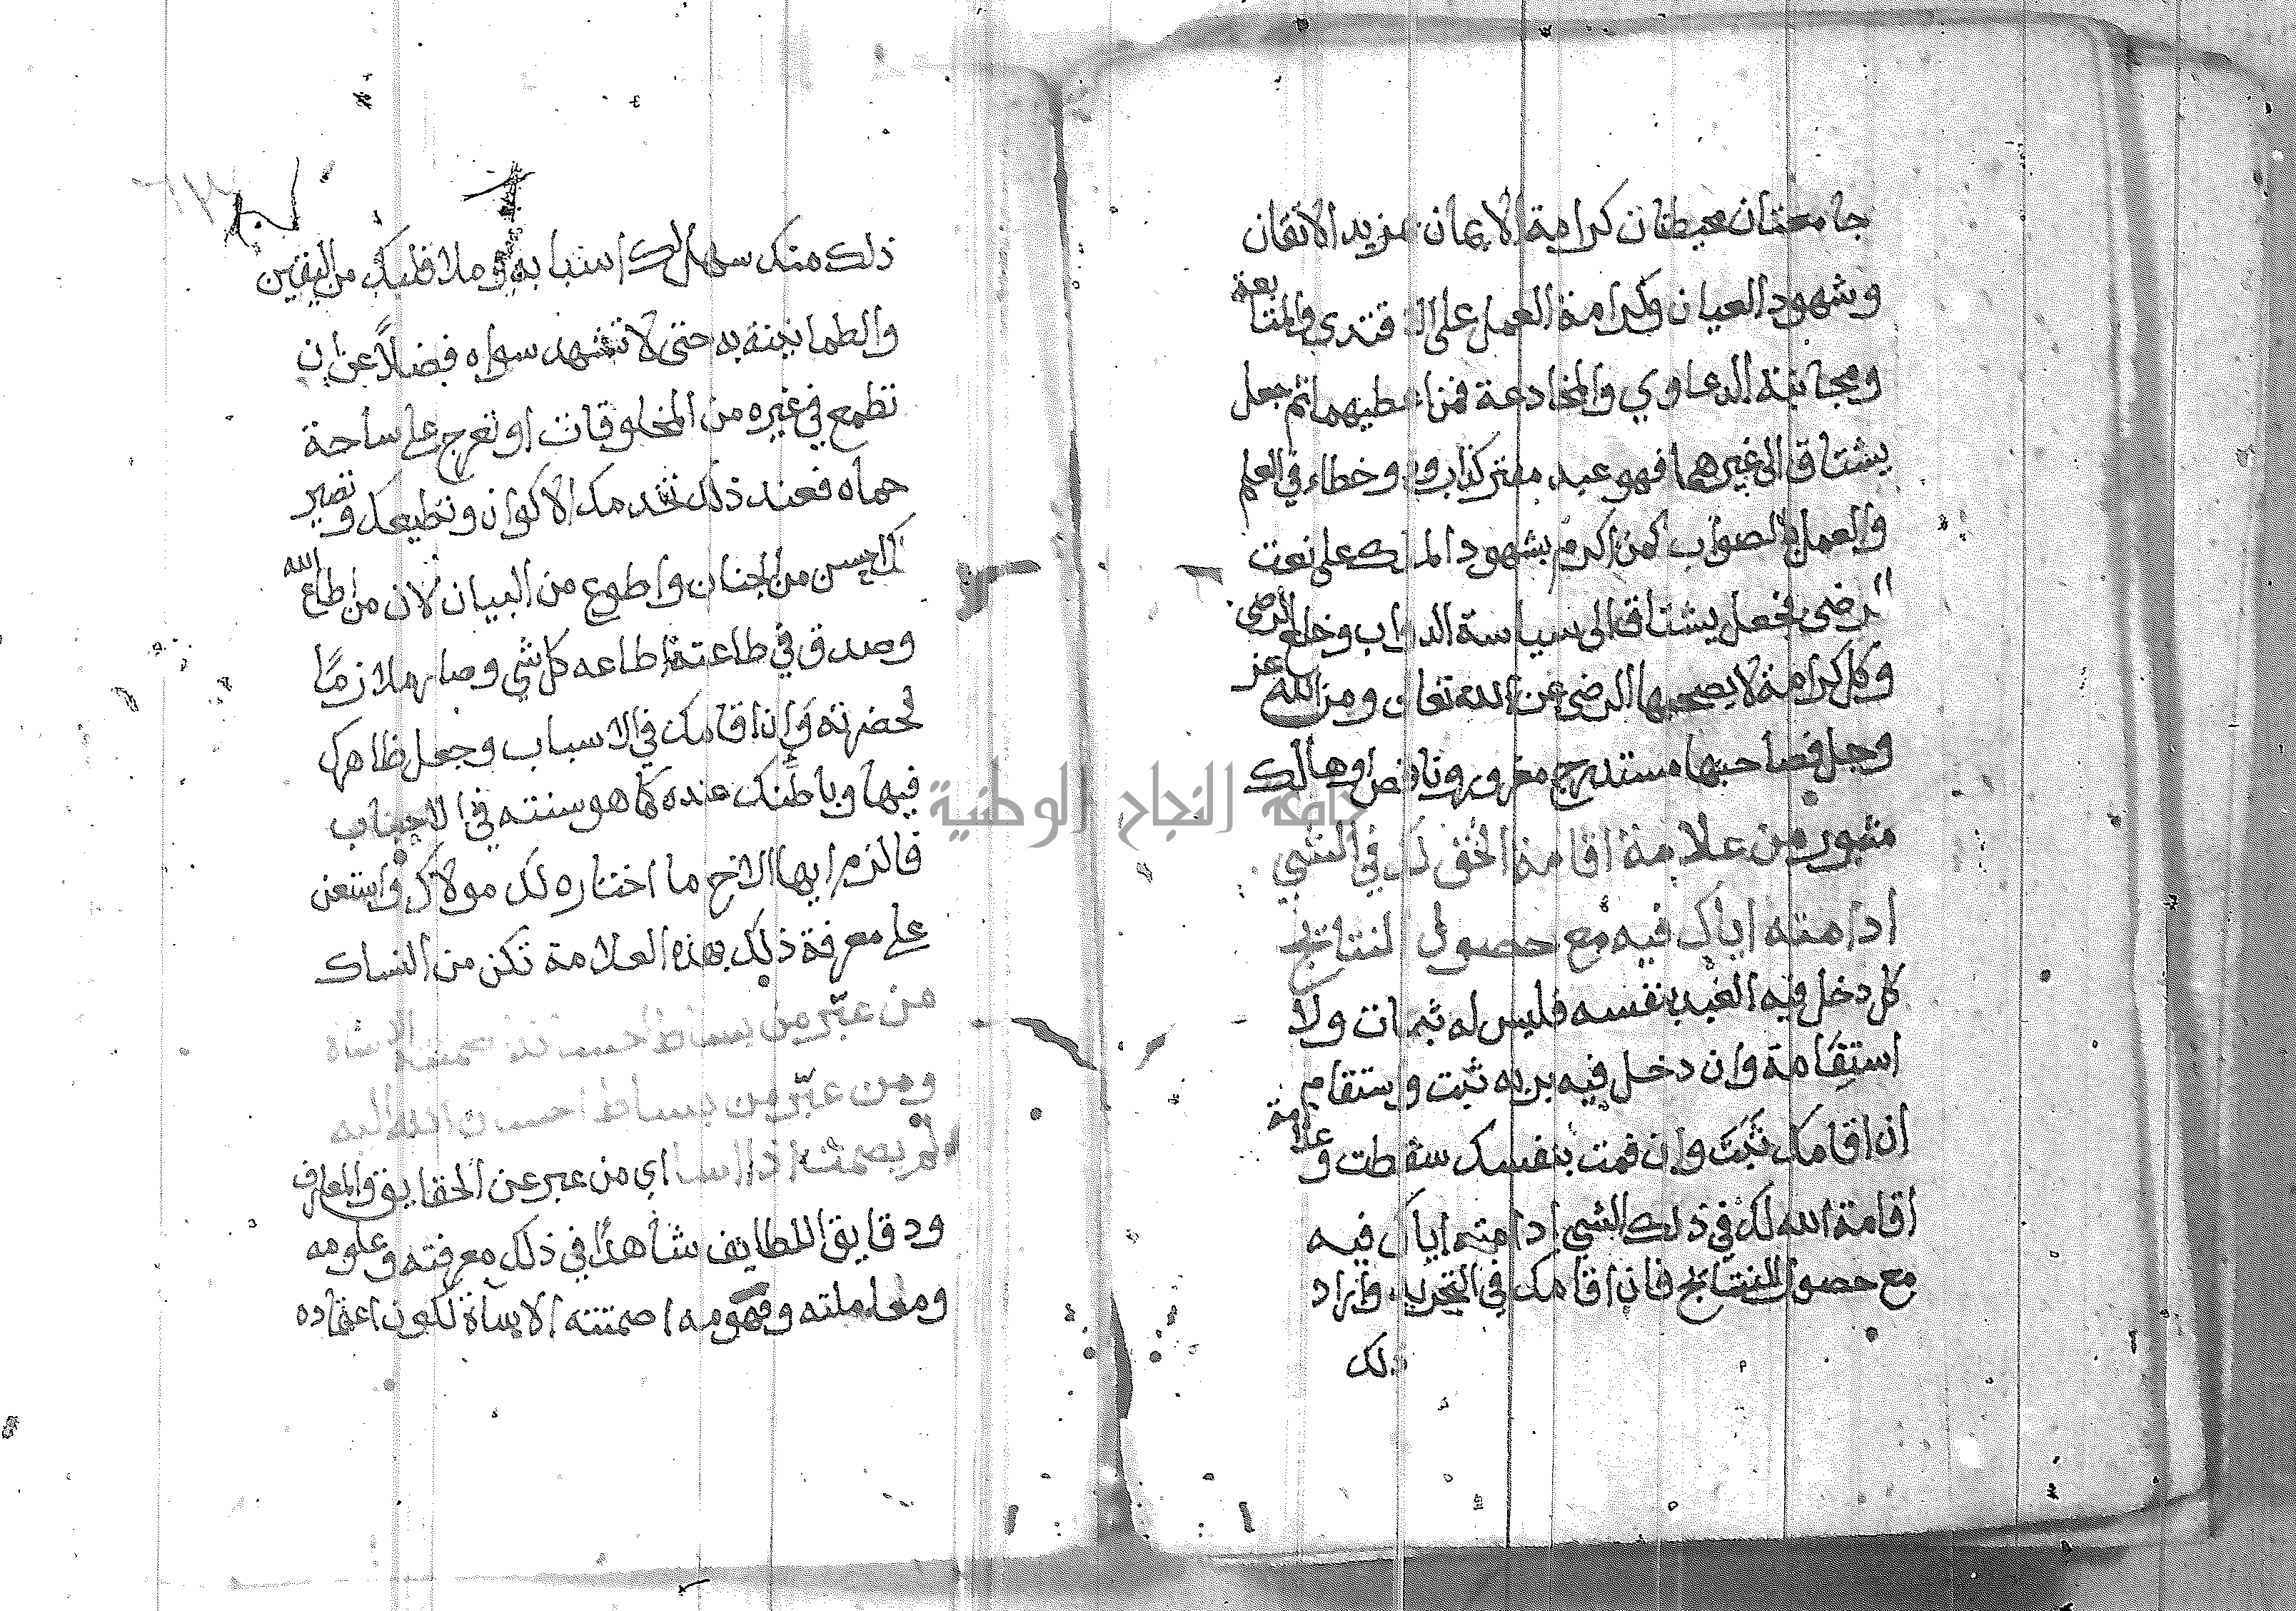 جامعتان محيطتان كرامة الايمان بمزيد الاتقان
وشهود العيان وكرامة العمل على الاقتدي والمتابعة
ومجانبة الدعاوي والمخادعة فمن اعطيهما ثم جعل
يشتاق الى غيرهما فهو عبد مفتر كذاب وذو خطاء في العلم
والعمل بالصواب كمن اكرم بشهود الملك على نعت
الرضى فجعل يشتاق الى سياسة الدواب وخلع الرضى
وكل كرامة لا يصحبها الرضى عن الله تعالى ومن الله عز
وجل فصاحبها مستدرج مغرور وناقص اوهالك
مثبور من علامة اقامة الحق لك في الشي
ادامته اياك فيه مع حصول النتائج
كل دخل فيه العبد بنفسه فليس له ثبات ولا
استقامة وان دخل فيه بربه ثبت واستقام
ان اقامك ثبت وان قمت بنفسك سقطت وعلامة
اقامة الله لك في ذلك الشي ادامته اياك فيه
مع حصول النتائج فان اقامك في التجريد واراد
ذلك
ذلك منك سهل لك اسبابه وملا قلبك من اليقين
والطمانينة به حتى لا تشهد سواه فضلاً عن ان
تطمع في غيره من المخلوقات او تعرج على ساحة
حماه فعند ذلك تخدمك الاكوان وتطيعك وتصير
لك احسن من الجنان واطوع من البيان لان من اطاع الله
وصدق في طاعته اطاعه كل شي وصار ملازمًا
لحضرته وان اقامك في الاسباب وجعل ظاهرك
فيها وباطنك عنده كما هو سنته في الاحباب
فالزم ايها الاخ ما اختاره لك مولاك واستعن
على معرفة ذلك بهذه العلامة تكن من النساك
من عبّر من بساط احسانه اصمتته الاساة
ومن عبّر من بساط احسان الله اليه
لم يصمت اذا اسا اي من عبر عن الحقايق والمعارف
ودقايق اللطايف شاهدًا في ذلك معرفته وعلومه
ومعاملته وفهومه اصمتته الاساة لكون اعتماده